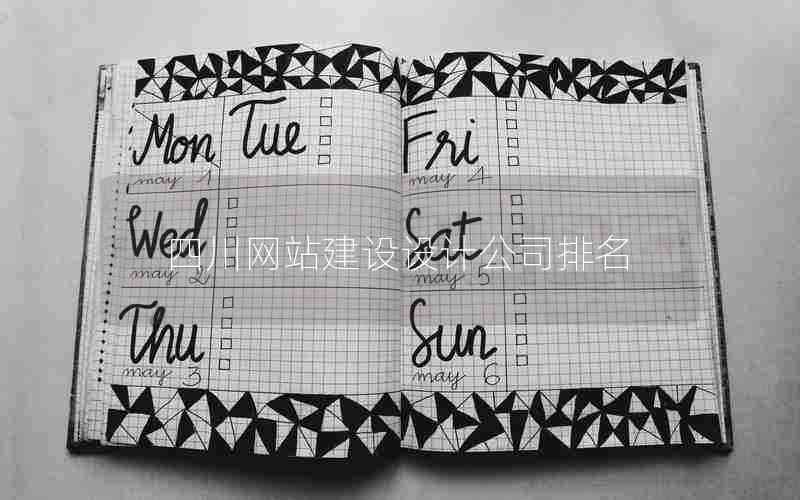 Mon
may 1
Tue
Wed
may 2
Thu
may 3
Fri
may 4
Sat
may 5
Sun
may 6
四川网站建设设计公司排名